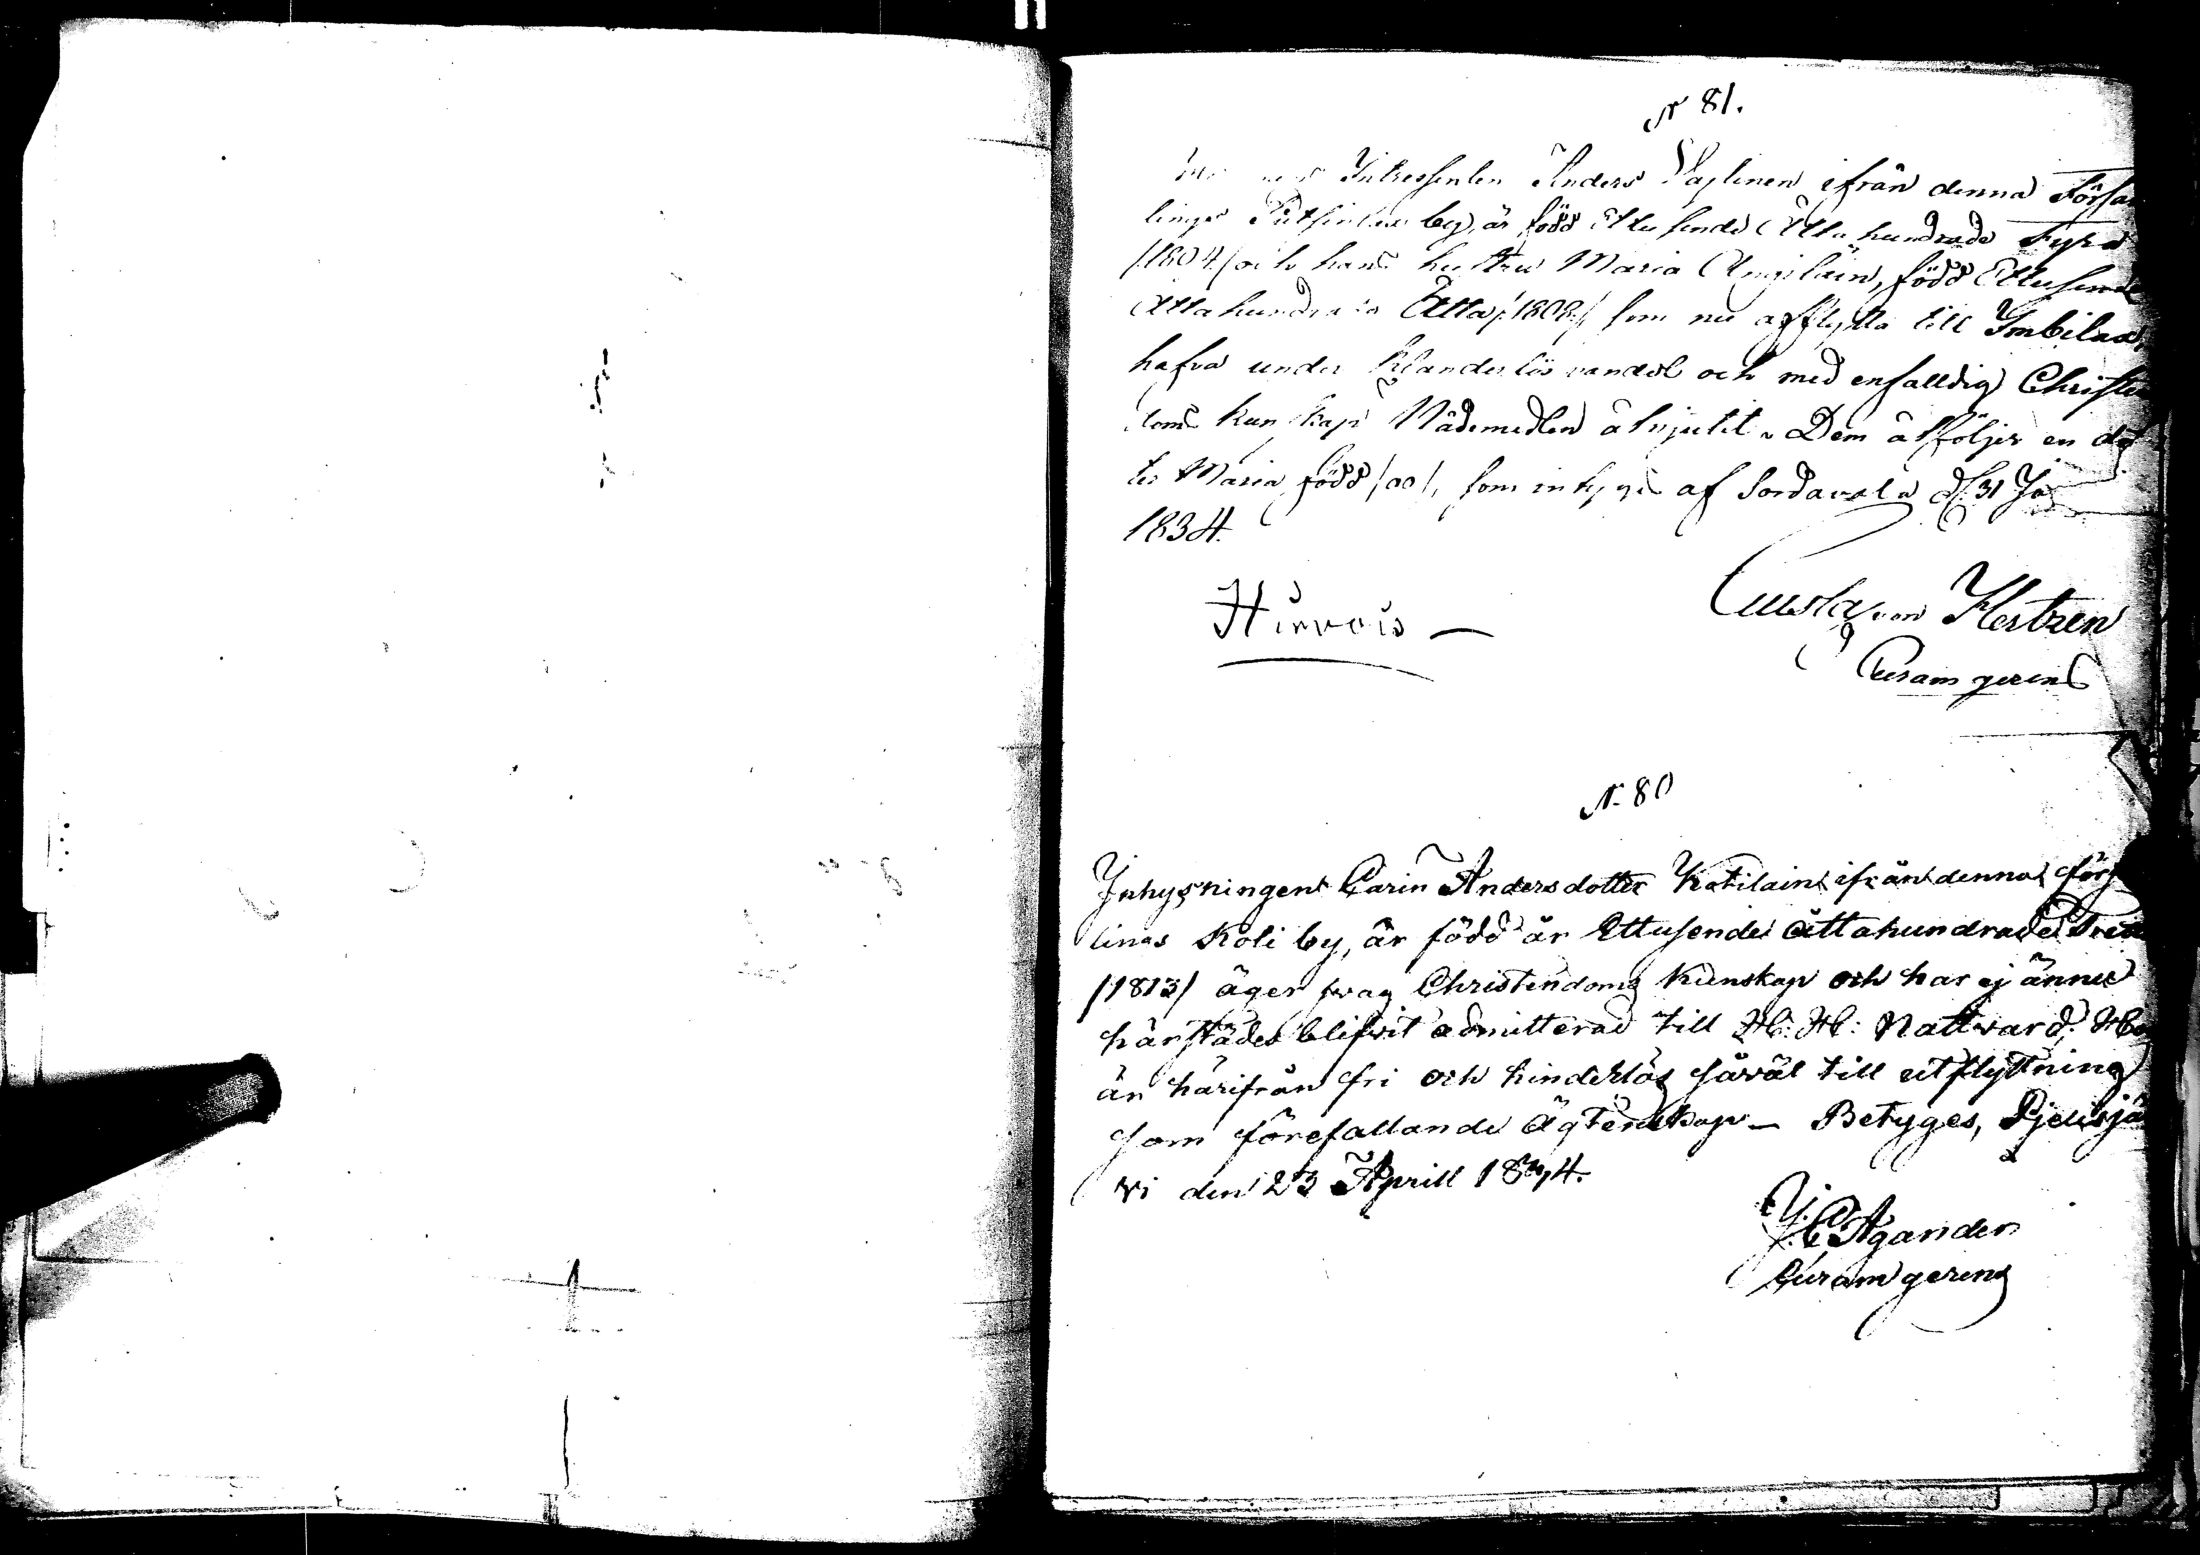 N 81.
Intressenten Anders Paplinen ifrån denna Försam
lings by, är född Ettusende Åtta hundrade Fyra
/1804/ och hans hustru Maria född Ettusende
Åttahundrade Åtta /:1808:/, som nu afflytta till Imbilax,
hafva under klanderlös vandel och med enfalldig Christen
doms kunskap Nådemedlen åtnjutit. Dem åtföljer en dot
ter Maria född som intygas af Sordavala d. 31
1834.
Gustaf von Hertzen
Curam gerens
Hirvois —
N. 80
Inhysningen Carin Andersdotter Katilain ifrån denna förs
lings Koli by, är född år Ettusende åttahundrade Trett
/1813/ äger svag Christendoms kunskap och har ej ännu
härstädes blifvit admitterad till H: H: Nattvard; Hon
är härifrån fri och hinderlös såväl till utflyttning
som förefallande Ägtenskap — Betyges, Pjelisjär
vi den 23 Aprill 1834.
J. C. Agander
Curam gerens